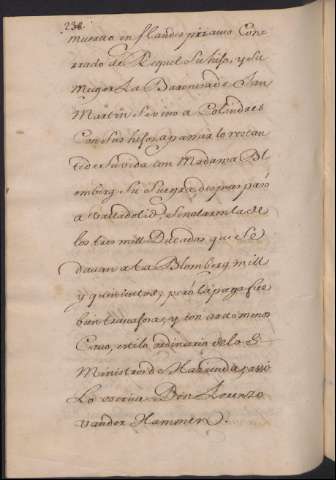 238.
muerto en flandes primero Con-
rrado de Piquel Su hijo, y Su
muger La Baronesa de San
Martin Se vino a Colindres
Con Sus hijos, a passar lo restan
te de su vida con Madama Bl
omberg Su Suegra despues passo
a Valladolid Señalaronla de
los tres mill Ducados que Se
davan a La Blomberg mill
y quinientos, pero la paga fue
bien travajosa, y con
Como, estilo ordinario de los
Ministros de Hazienda, passo
Lo escrive Don Lorenzo
vander Hammen.